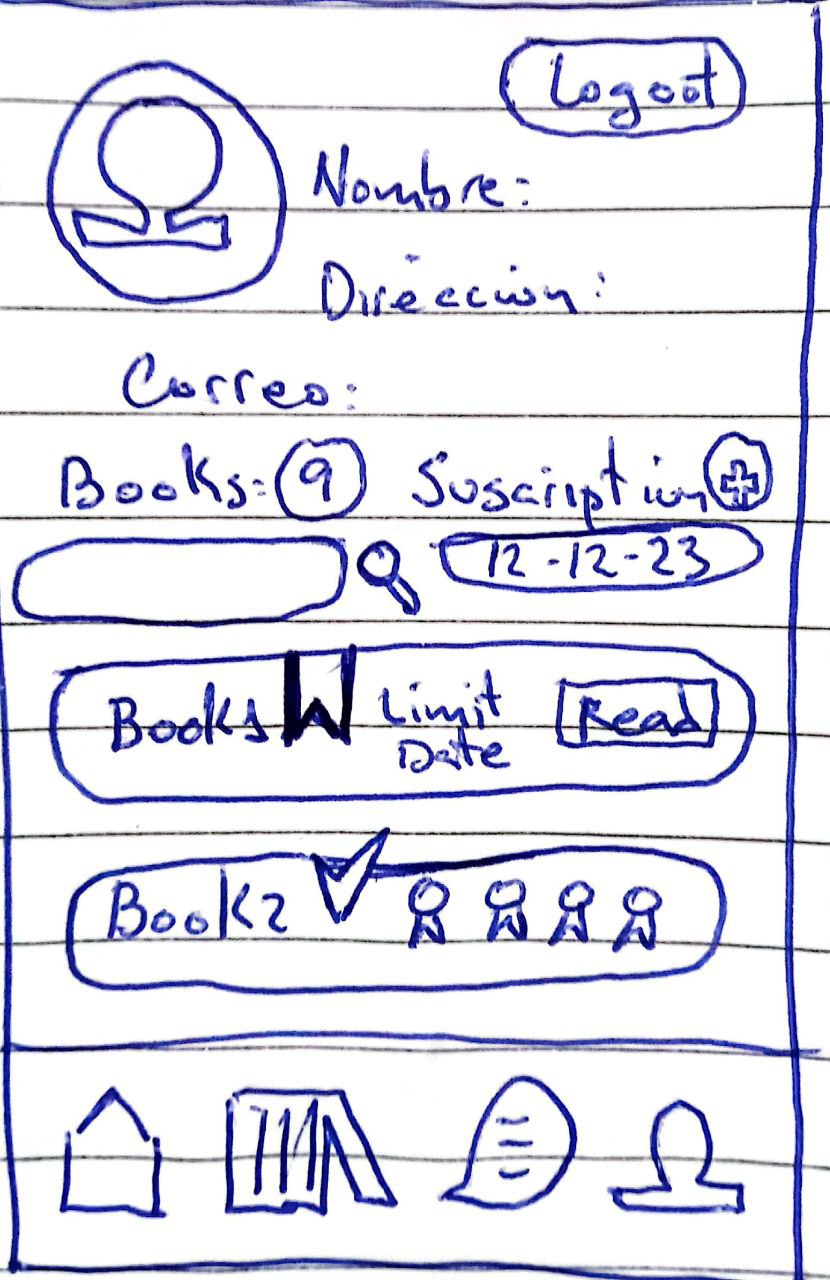 Logout
Nombre:
Dirección:
Correo:
Books: 9 Suscription
12-12-23
Book1 Limit Date Read
Book2